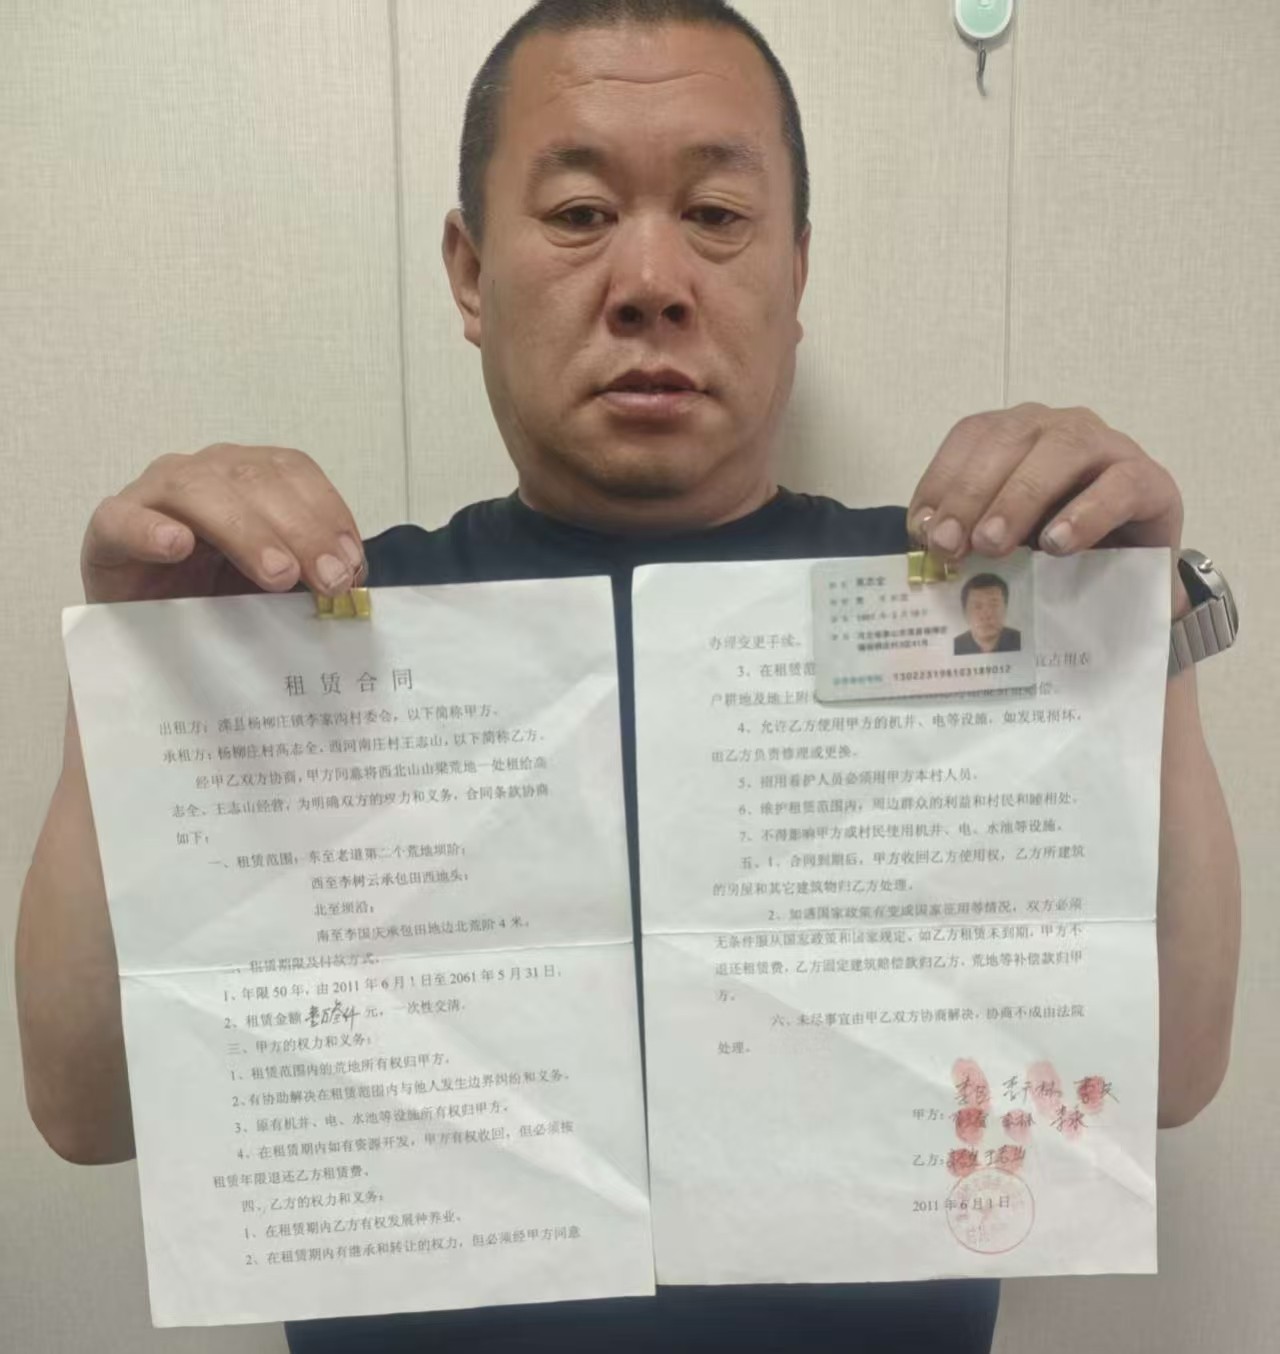 租赁合同
出租方：滦县杨柳庄镇李家沟村委会，以下简称甲方。
承租方：杨柳庄村高志全、西河南庄村王志山，以下简称乙方。
经甲乙双方协商，甲方同意将西北山山梁荒地一处租给高
志全、王志山经营，为明确双方的权力和义务，合同条款协商
如下：
一、租赁范围：东至老道第二个荒地坝阶；
西至李树云承包田西地头；
北至坝沿；
南至李国庆承包田地边北荒阶4米。
二、租赁期限及付款方式：
1、年限50年，由2011年6月1日至2061年5月31日。
2、租赁金额壹万叁仟元，一次性交清。
三、甲方的权力和义务：
1、租赁范围内的荒地所有权归甲方。
2、有协助解决在租赁范围内与他人发生边界纠纷和义务。
3、原有机井、电、水池等设施所有权归甲方。
4、在租赁期内如有资源开发，甲方有权收回，但必须按
租赁年限退还乙方租赁费。
四、乙方的权力和义务：
1、在租赁期内乙方有权发展种养业。
2、在租赁期内有继承和转让的权力，但必须经甲方同意
办理变更手续。
3、在租赁范 占用农
户耕地及地上附 赔偿。
4、允许乙方使用甲方的机井、电等设施，如发现损坏，
由乙方负责修理或更换。
5、雇用看护人员必须用甲方本村人员。
6、维护租赁范围内，周边群众的利益和村民和睦相处。
7、不得影响甲方或村民使用机井、电、水池等设施。
五、1、合同到期后，甲方收回乙方使用权，乙方所建筑
的房屋和其它建筑物归乙方处理。
2、如遇国家政策有变或国家征用等情况，双方必须
无条件服从国家政策和国家规定，如乙方租赁未到期，甲方不
退还租赁费，乙方固定建筑赔偿款归乙方，荒地等补偿款归甲
方。
六、未尽事宜由甲乙双方协商解决，协商不成由法院
处理。
甲方：
乙方：王志山
2011年6月1日
130223198103189012